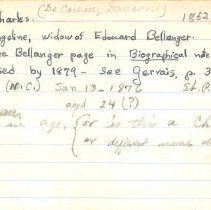 (De Coriean, Garcon)
Charles. 1852
geline, widow of Edouard Bellanger.
ee Bellanger page in Biographical note
sed by 1879 - See Gervais, p. 3
(M.C.) Jan. 13-1876 St. P.
aged 24 (?)
in age, (or is this a Ch
or different